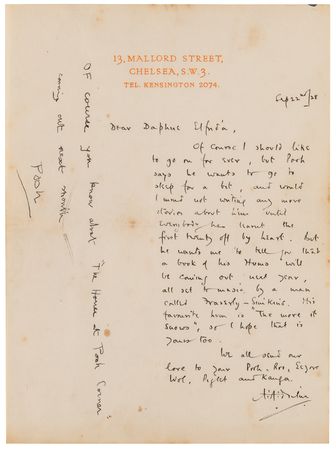 13, MALLORD STREET,
CHELSEA, S.W.3.
TEL. KENSINGTON 2074.
Sep 22nd/28
Dear Daphne Elfrida,
Of course I should like
to go on for ever, but Pooh
says he wants to go to
sleep for a bit, and would
I mind not writing any more
stories about him until
everybody has learnt the
first twenty off by heart. But
he wants me to tell you that
a book of his Hums will
be coming out next year,
all set to music by a man
called Fraserly-Simkins. His
favourite hum is "The more it
snows", so I hope that is
yours too.
We all send our
love to your Pooh, Roo, Eeyore
Wol, Piglet and Kanga.
A.A. Milne
Of course you know about "The House at Pooh Corner"
coming out next month
Pooh